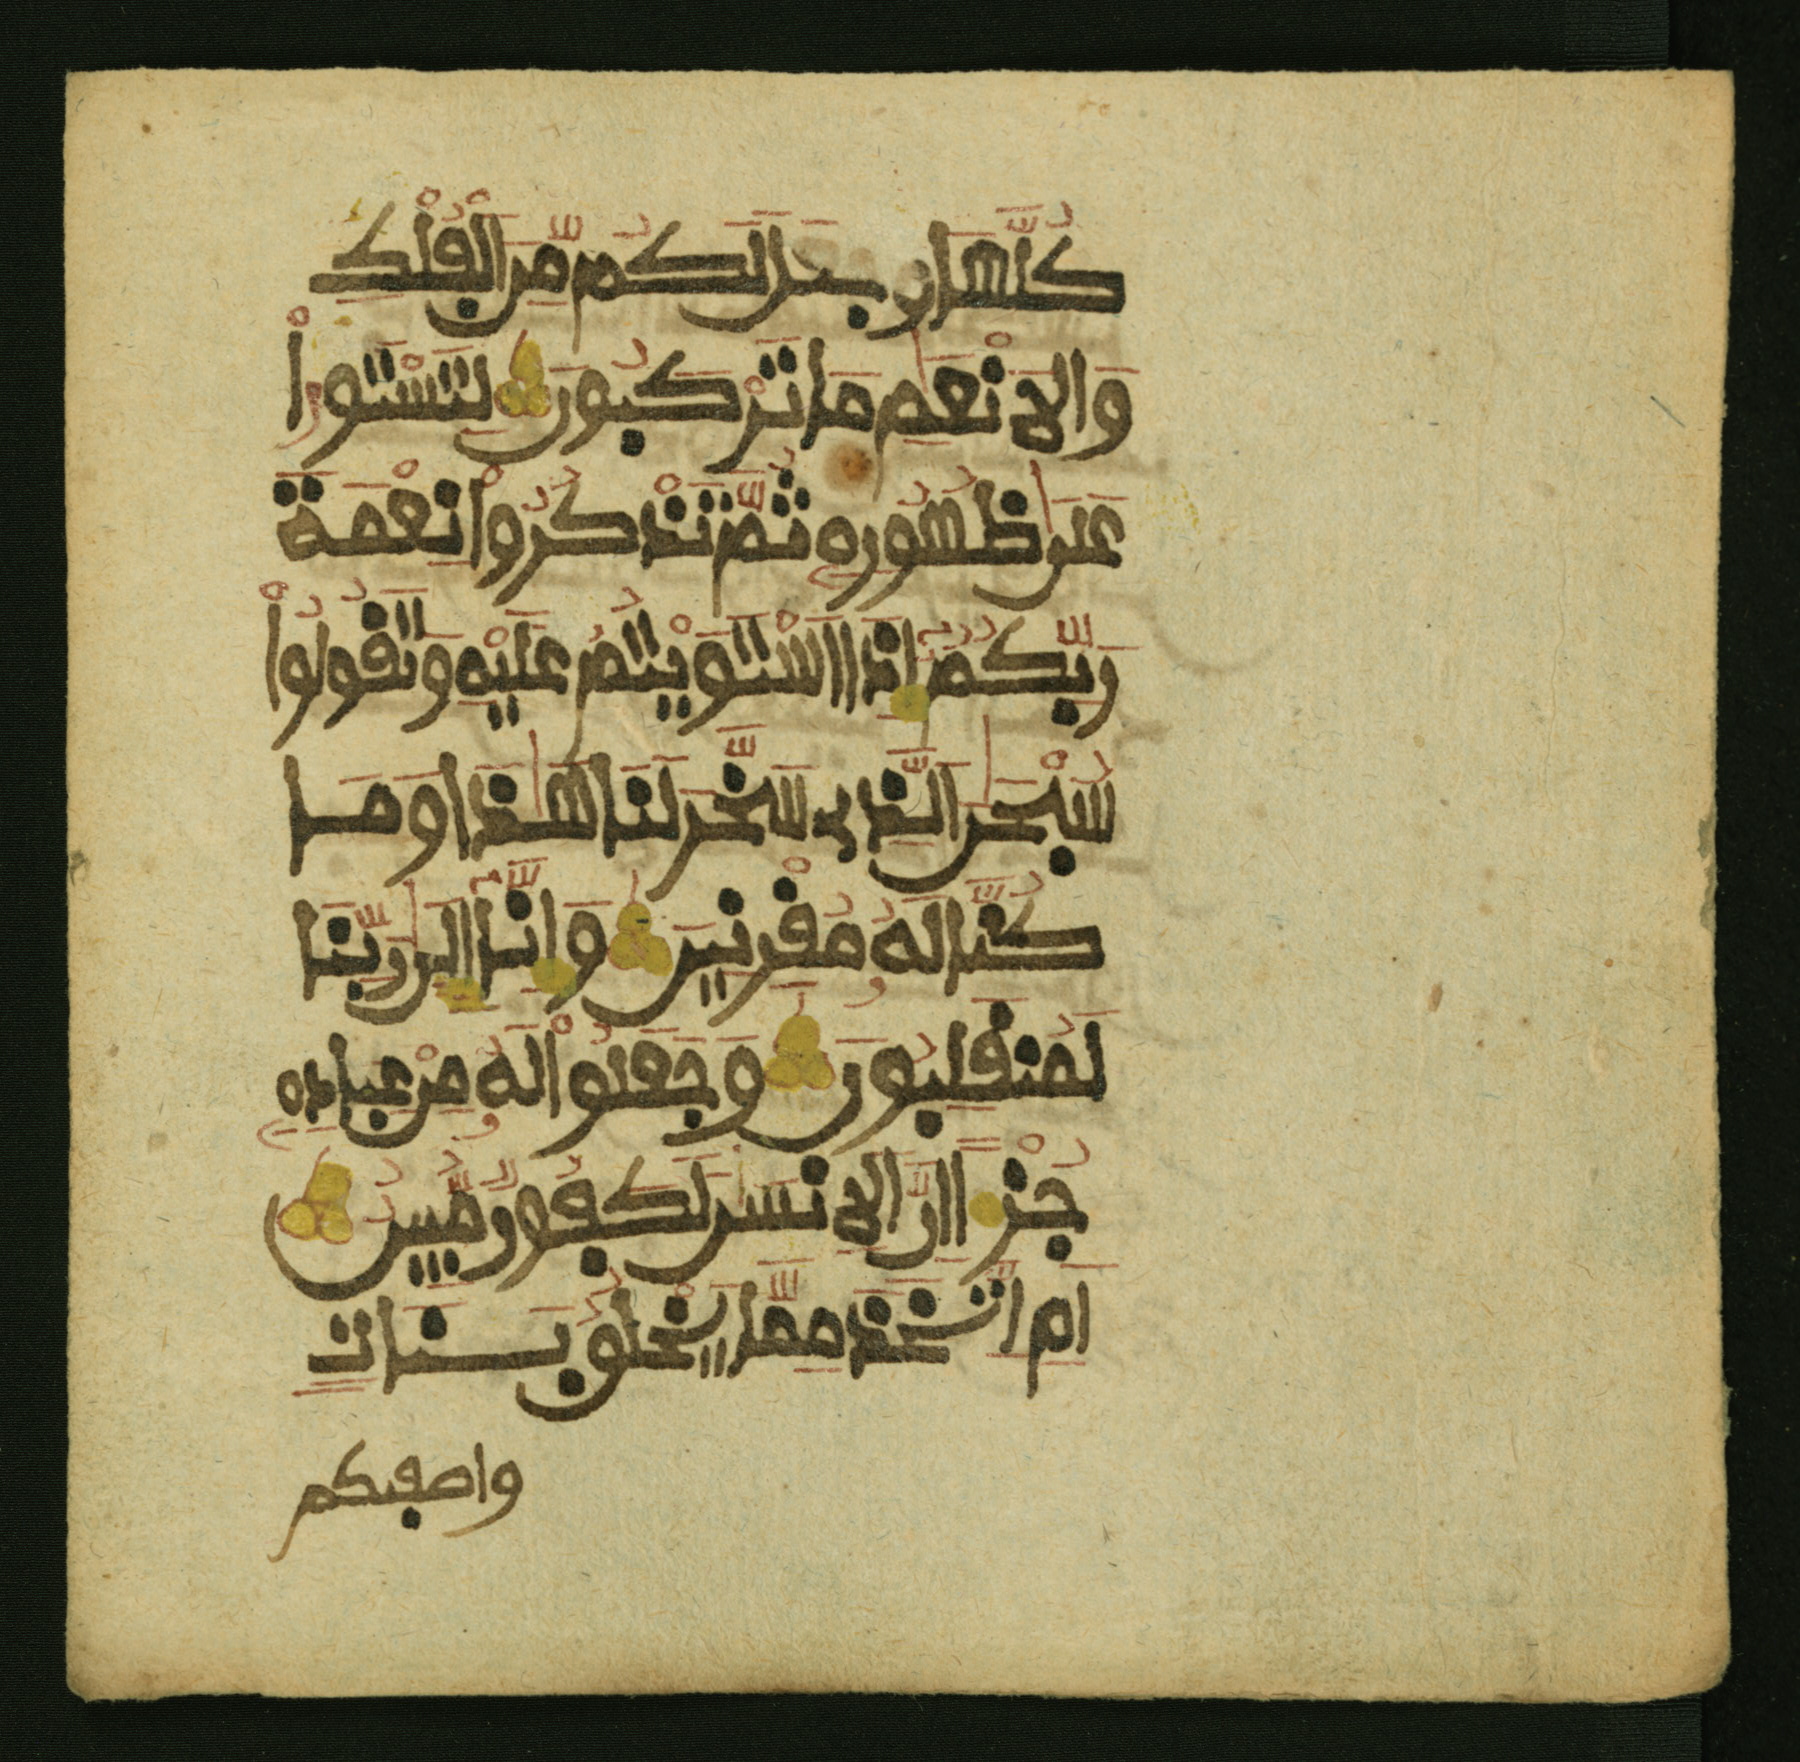 كُلَّهَا وَجَعَلَ لَكُم مِّنَ ٱلْفُلْكِ
وَالَانْعَٰمِ مَا تَرْكَبُونَ لِتَسْتَوُۥاْ
عَلَىٰ ظُهُورِهِۦ ثُمَّ تَذْكُرُواْ نِعْمَةَ
رَبِّكُمُۥٓ إِذَا اَسْتَوَيْتُمْ عَلَيْهِ وَتَقُولُواْ
سُبْحَٰنَ ٱلَّذِى سَخَّرَ لَنَا هَٰذَا وَمَا
كُنَّا لَهُۥ مُقْرِنِينَ وَإِنَّآ إِلَىٰ رَبِّنَا
لَمُنقَلِبُونَ وَجَعَلُواْ لَهُۥ مِنْ عِبَادِهِۦ
جُزْءاً اِنَّ اَلِانسَٰنَ لَكَفُورٌ مُّبِينٌ
أَمِ اِتَّخَذَ مِمَّا يَخْلُقُ بَنَاتٍ
وأصفىكم